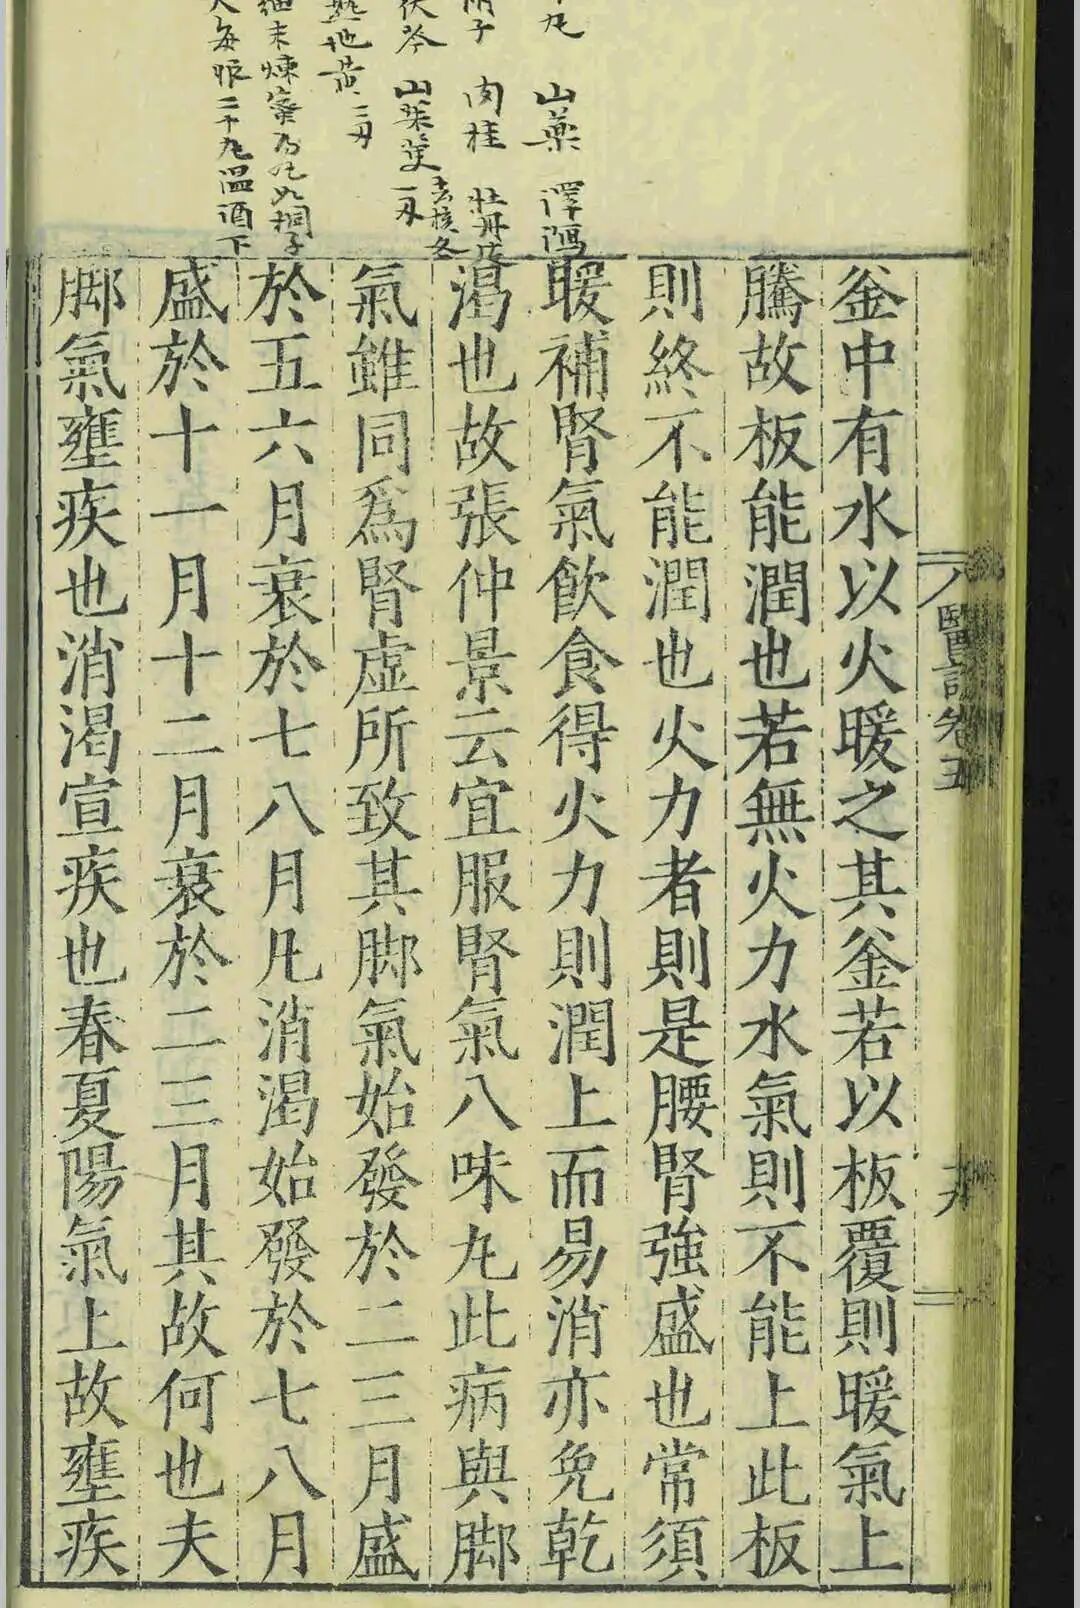 丸 山藥 澤瀉
附子 肉桂 牡丹皮
茯苓 山茱萸 去核各一刄
熟地黃 二刄
細末煉蜜為丸如桐子
大每服二十丸溫酒下
釜中有水以火暖之其釜若以板覆則暖氣上
騰故板能潤也若無火力水氣則不能上此板
則終不能潤也火力者則是腰腎強盛也常須
暖補腎氣飲食得火力則潤上而易消亦免乾
渴也故張仲景云宜服腎氣八味丸此病與脚
氣雖同爲腎虛所致其脚氣始發於二三月盛
於五六月衰於七八月凡消渴始發於七八月
盛於十一月十二月衰於二三月其故何也夫
脚氣壅疾也消渴宣疾也春夏陽氣上故壅疾
醫說卷五